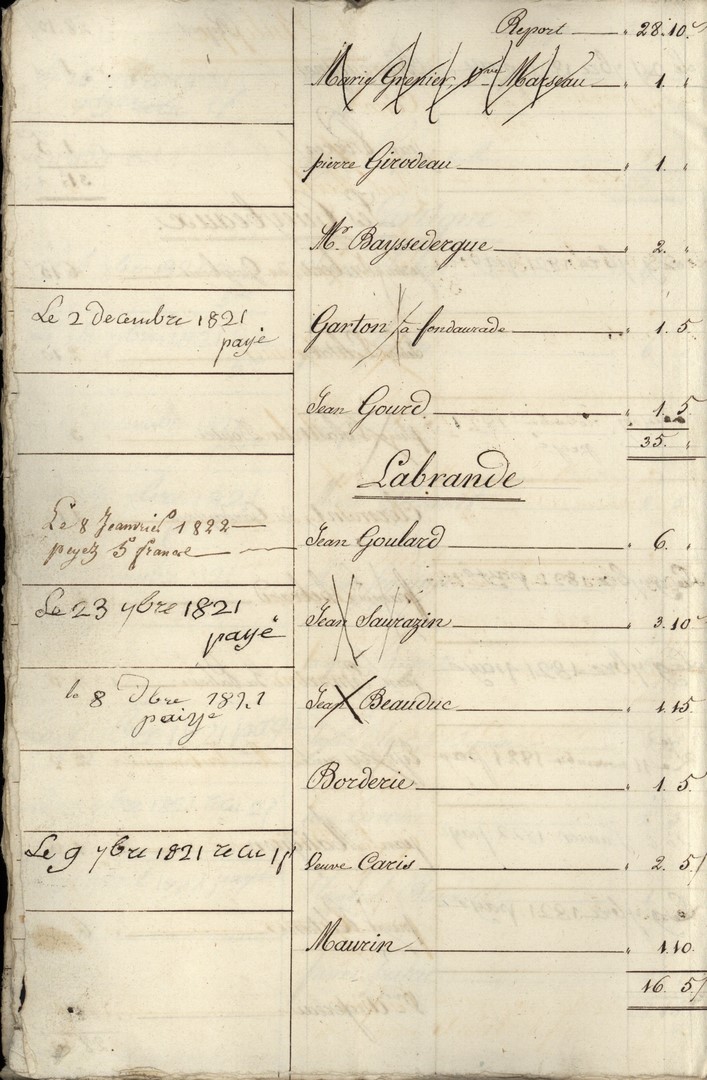 Report — " 28. 10
Marie Grenier, Vve Marseau — " 1. "
pierre Girodeau — " 1. "
Mr. Bayssedergue — " 2. "
Le 2 decembre 1821
payé
Garton à fondaurade — " 1. 5
Jean Gourd — " 1. 5
35. "
Labrande
Le 8 Jeanvriel 1822 —
peyez 5 franc —
Jean Goulard — " 6. "
Le 23 ybre 1821
payé
Jean Saurazin — " 3. 10
le 8 Dbre 1821
paiye
Jean Beauduc — " 1. 15
Borderie — " 1. 5
Le 9 ybre 1821 recu 1
Veuve Caris — " 2. 5
Maurin — " 1. 10
16. 5